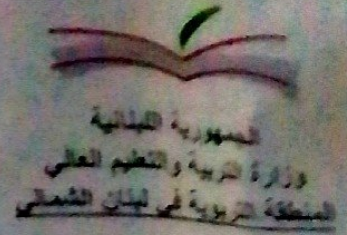 الجمهورية اللبنانية
وزارة التربية والتعليم العالي
المنطقة التربوية في لبنان الشمالي